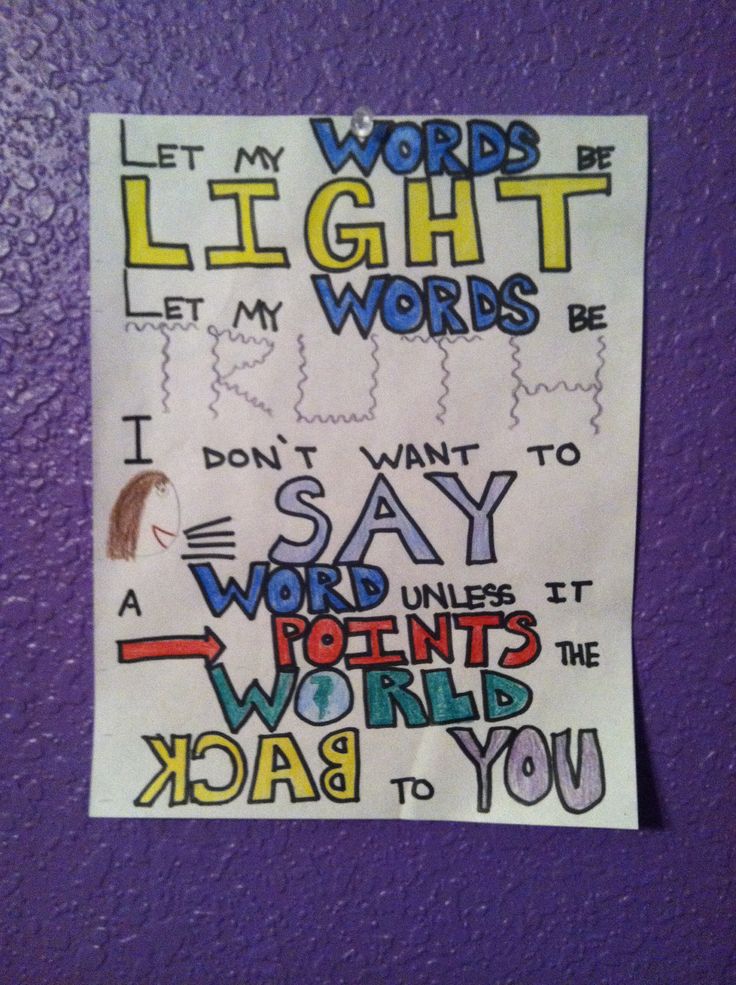 LET MY WORDS BE
LIGHT
LET MY WORDS BE
TRUTH
I DON'T WANT TO
SAY
A WORD UNLESS IT
POINTS THE
WORLD
BACK TO YOU